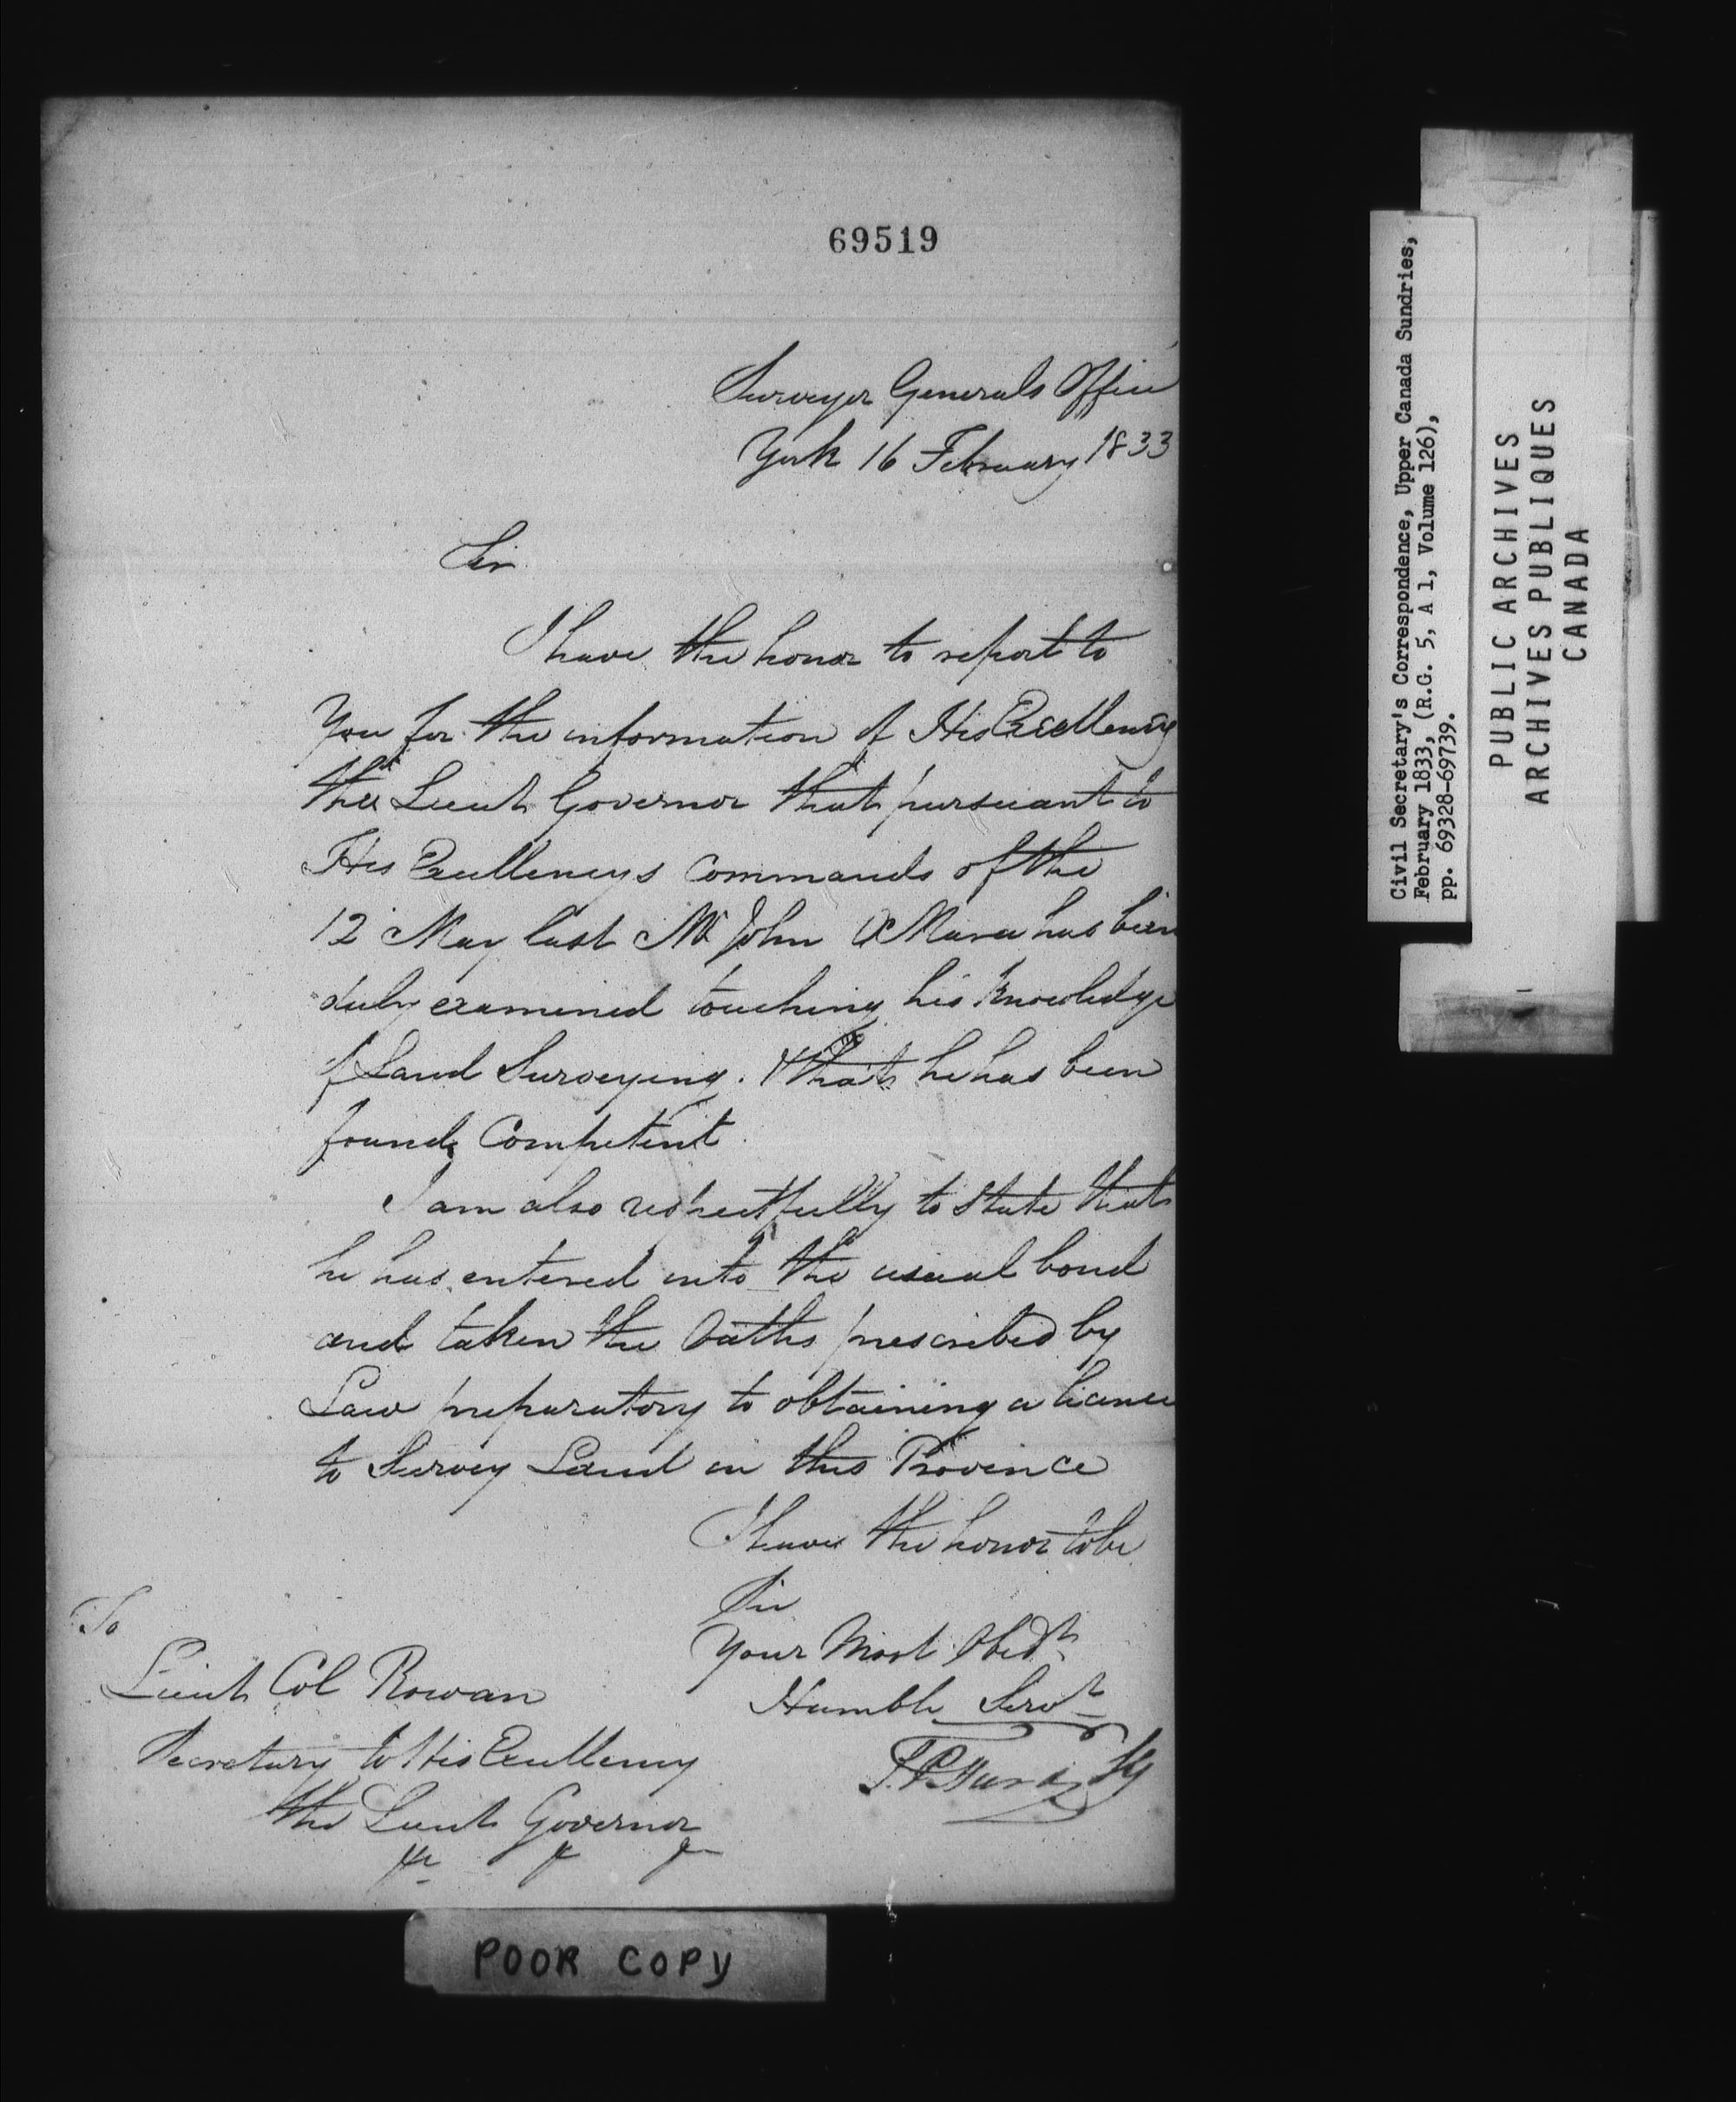 69519
Surveyor Generals Office
York 16 February 1833
Sir
I have the honor to report to
You for the information of His Excellency
the Lieut Governor that pursuant to
His Excellencys Commands of the
12 May last Mr John OMara has been
duly examined touching his Knowledge
of Land Surveying. & that he has been
found Competent.
I am also respectfully to State that
he has entered into the usual bond
and taken the Oaths prescribed by
Law preparatory to obtaining a licence
to Survey Land in this Province
I have the honor to be
Sir
Your Most Obedt
Humble Servt
SG
To
Lieut Col Rowan
Secretary to His Excellency
the Lieut Governor
&c &c &c
POOR COPY
Civil Secretary's Correspondence, Upper Canada Sundries,
February 1833, (R.G. 5, A 1, Volume 126),
pp. 69328-69739.
PUBLIC ARCHIVES
ARCHIVES PUBLIQUES
CANADA